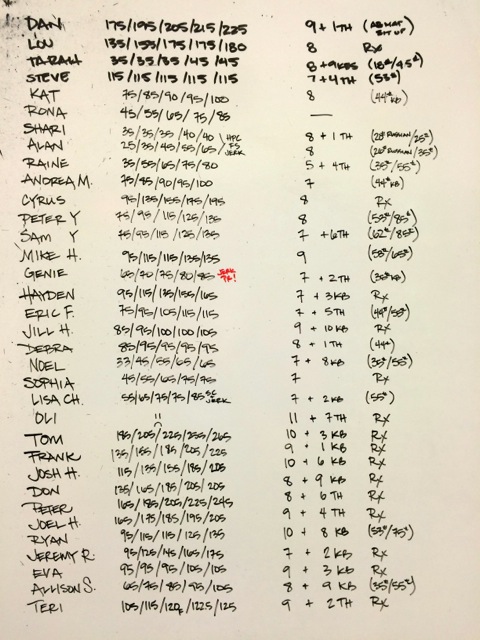 DAN 175/195/205/215/225 9 + 1TH (ABMAT SIT UP)
LOU 135/155/175/175/180 8 Rx
TARAH 35/35/35/45/45 8 + 9KBS (18#/45#)
STEVE 115/115/115/115/115 7 + 4TH (53#)
KAT 75/85/90/95/100 8 (44# KB)
RONA 45/55/65/75/85 —
SHARI 35/35/35/40/40 8 + 1 TH (26# RUSSIAN/25#)
ALAN 25/35/45/55/65/ HPC FS JERK 8 (26# RUSSIAN/35#)
RAINE 35/55/65/75/80 5 + 4TH (35#/55#)
ANDREA M. 75/85/90/95/100 7 (44# KB)
CYRUS 95/135/155/175/195 8 Rx
PETER Y 75/95/115/125/135 8 (53#/85#)
SAM Y 75/95/115/125/135 7 + 6TH (62#/85#)
MIKE H. 95/115/115/135/135 9 (53#/65#)
GENIE 65/70/75/80/85 JERK PR! 7 + 2TH (35# KB)
HAYDEN 95/115/135/155/165 7 + 3KB Rx
ERIC F. 75/95/105/115/115 7 + 5TH (44#/55#)
JILL H. 85/95/100/100/105 9 + 10 KB Rx
DEBRA 85/95/95/95/95 8 + 1TH (44#)
NOEL 33/45/55/65/65 7 + 8KB (35#/55#)
SOPHIA 45/55/65/75/75 7 Rx
LISA CH. 55/65/75/75/85 JERK 7 + 2KB (55#)
OLI 11 + 7TH Rx
TOM 185/205/225/255/265 10 + 3 KB Rx
FRANK 135/155/185/205/225 9 + 1 KB Rx
JOSH H. 115/135/155/185/205 10 + 6 KB Rx
DON 135/165/185/205/205 8 + 9 KB Rx
PETER 165/185/205/225/245 8 + 6 TH Rx
JOEL H. 165/175/185/195/205 9 + 4 TH Rx
RYAN 95/115/115/125/135 10 + 8 KB (53#/75#)
JEREMY R. 95/125/145/165/175 7 + 2 KB Rx
EVA 95/95/95/105/105 9 + 3 KB Rx
ALLISON S. 65/75/85/95/105 8 + 9 KB (35#/55#)
TERI 105/115/120/1225/125 9 + 2TH Rx